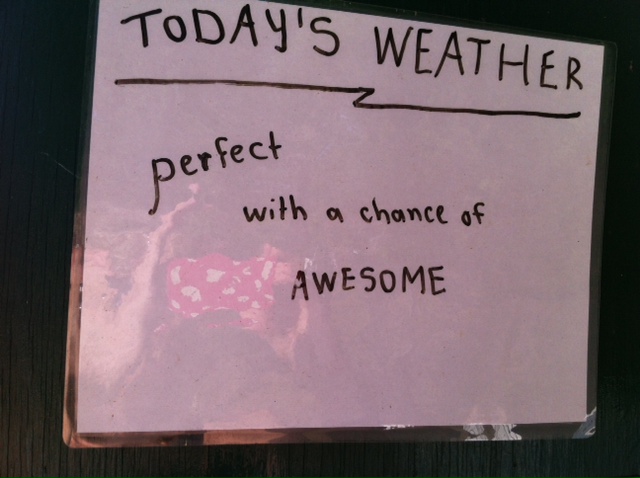 TODAY'S WEATHER
perfect
with a chance of
AWESOME